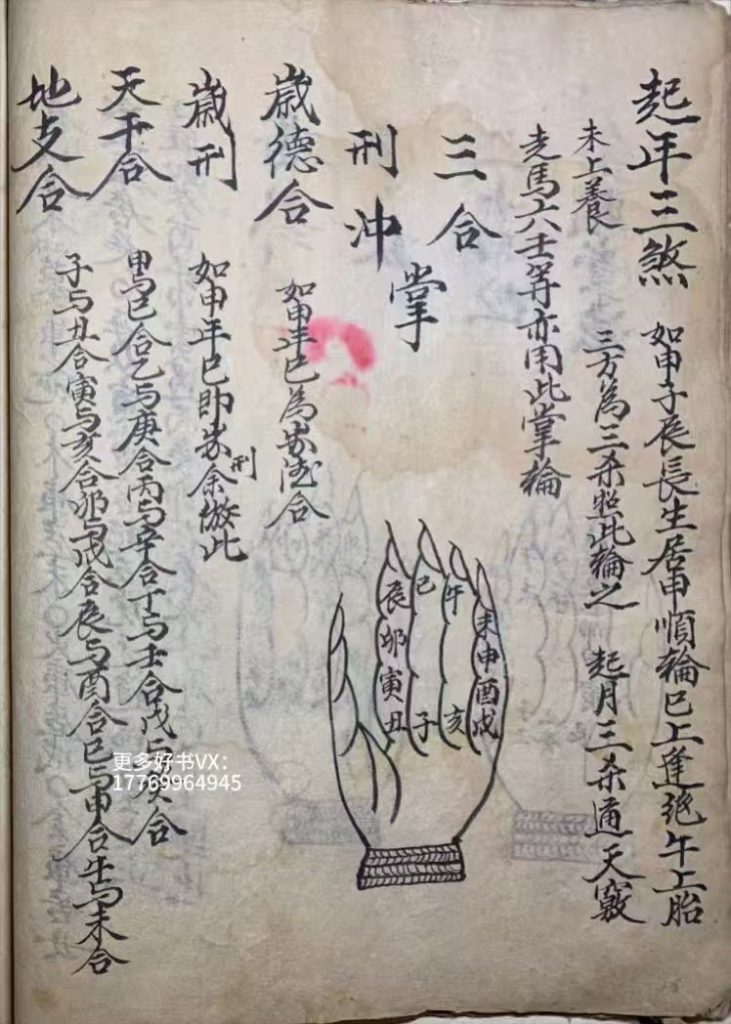 起年三煞
如申子辰長生居申順輪巳上逢绝午上胎
未上養
三方為三杀照此輪之
起月三杀通天竅
走馬六壬等亦用此掌輪
三合
刑冲
掌
歲德合
如甲年巳為岁德合
歲刑
如甲年巳即岁刑余倣此
天干合
甲与己合乙与庚合丙与辛合丁与壬合戊与癸合
地支合
子与丑合寅与亥合卯与戌合辰与酉合巳与申合午与未合
辰卯寅丑
巳
子
午
亥
未申酉戌
更多好书VX：
17769964945